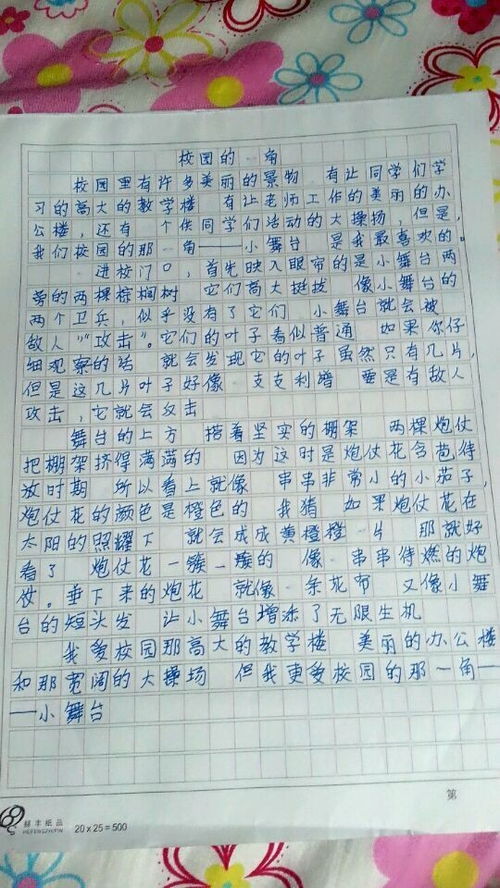 校园的一角
校园里有许多美丽的景物 有让同学们学
习的高大的教学楼 有让老师工作的美丽的办
公楼，还有一个供同学们活动的大操扬，但是，
我们校园的那一角——小舞台 是我最喜欢的。
一进校门口，首先映入眼帘的是小舞台两
旁的两棵棕榈树 它们高大挺拔 像小舞台的
两个卫兵，似乎没有了它们 小舞台就会被
敌人“攻击”。它们的叶子看似普通 如果你仔
细观察的话 就会发现它的叶子虽然只有几片，
但是这几片叶子好像一支支利增 要是有敌人
攻击，它就会攻击
舞台的上方 搭着坚实的棚架 两棵炮仗
把棚架挤得满满的 因为这时是炮仗花含苞待
放时期 所以看上就像一串串非常小的小茄子，
炮仗花的颜色是橙色的 我猜 如果炮仗花在
太阳的照耀下 就会成成黄橙橙一片 那就好
看了 炮仗花一簇一簇的 像一串串待燃的炮
仗。垂下来的炮花 就像一条花布 又像小舞
台的短头发 让小舞台增添了无限生机
我爱校园那高大的教学楼 美丽的办公楼
和那宽阔的大操场 但我更爱校园的那一角—
—小舞台
第
20×25=500